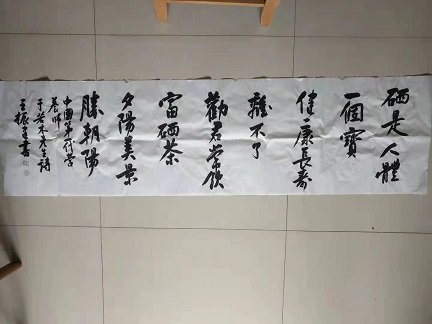 硒是人體
一個寶
健康長壽
離不了
勸君常飲
富硒茶
夕陽美景
勝朝陽
中國第一營
養師
于若木先生詩
王振書